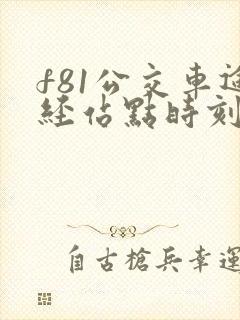 f81公交車途
經佔點時刻
自古槍兵幸運